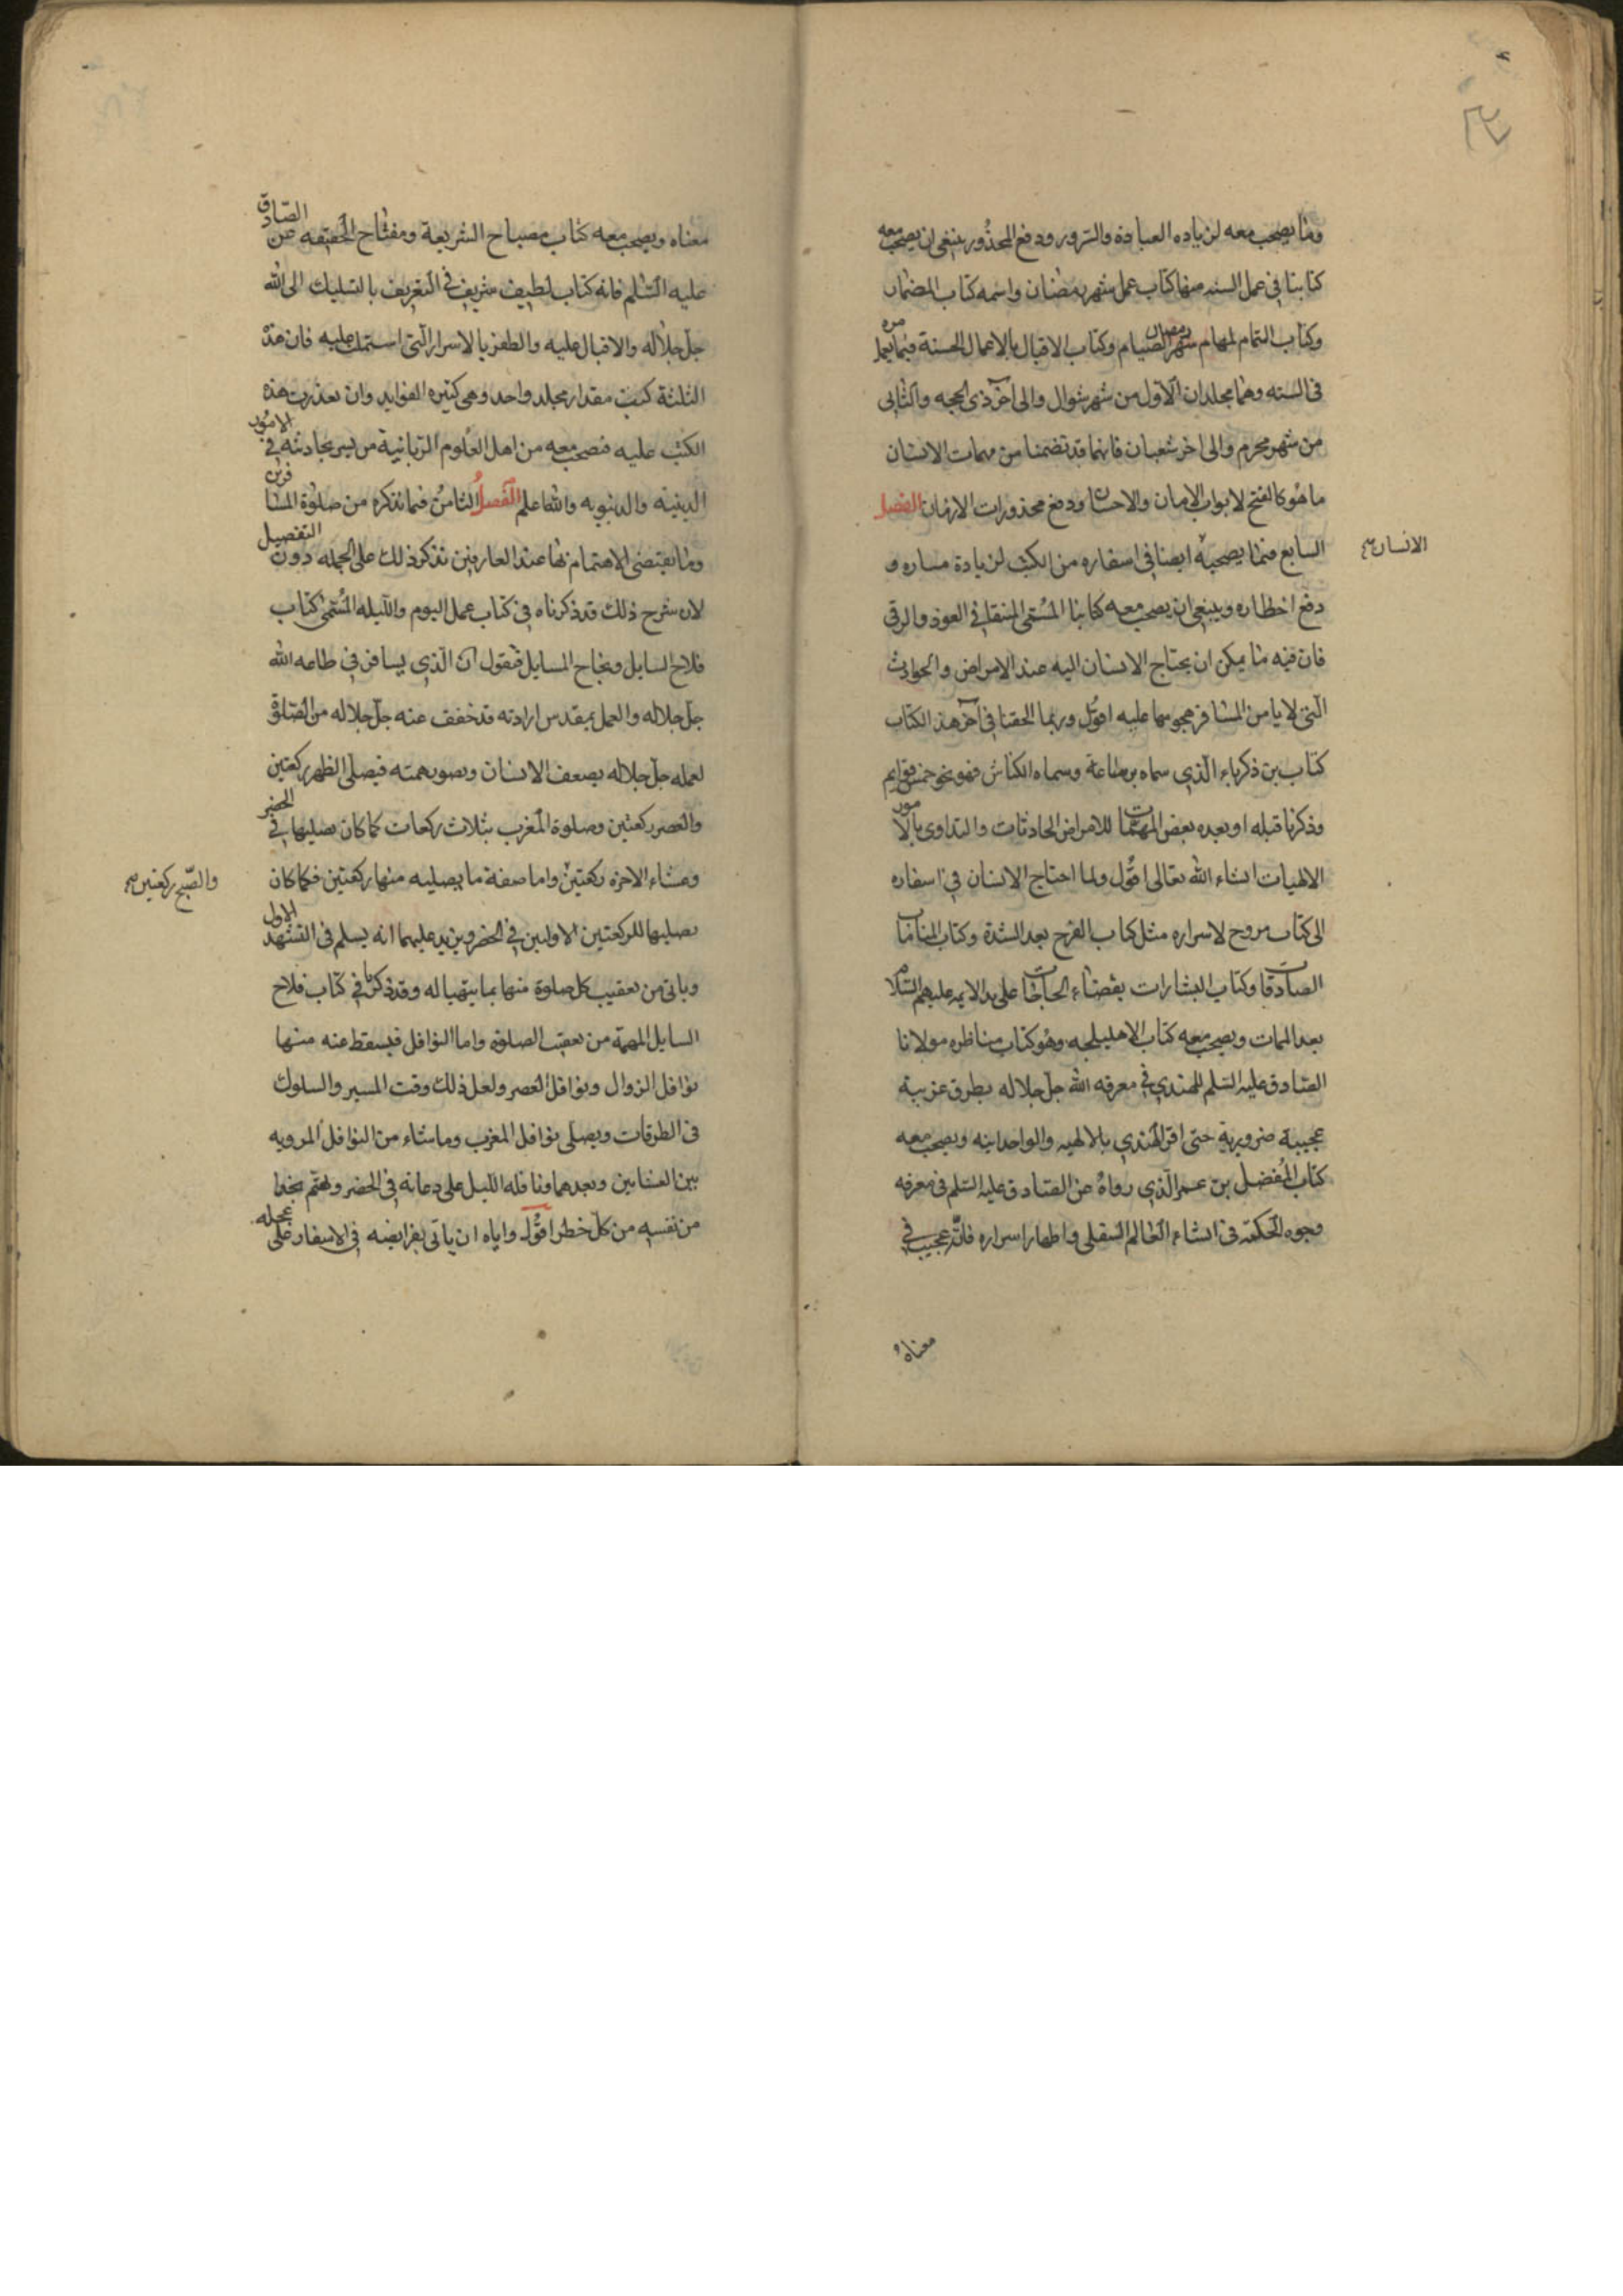 وما يصحب معه لزياده العبادة والسرور ودفع المحذور ينبغى ان يصحب معه
كتابنا فى عمل السنه منها كتاب عمل شهر رمضان واسمه كتاب المضمار
وكتاب التمام لمهام شهر الصيام وكتاب الاقبال بالاعمال الحسنة فيما يعمل
رمضان
مره
فى السنه وهما مجلدان الاول من شهر شوال والى اخر ذى الحجه والثانى
من شهر محرم والى اخر شعبان فانهما قد تضمنا من مهمات الانسان
ما هو كالفتح لابواب الامان والاحسان ودفع محذورات الازمان الفصل
السابع فيما يصحبه ايضا فى اسفاره من الكتب لزيادة مساره و
الانسان
دفع اخطاره وينبغى ان يصحب معه كتابنا المسمى المنتقا فى العوذ والرقى
فان فيه ما يمكن ان يحتاج الانسان اليه عند الامراض والحوادث
الّتى لا يامن المسافر هجومها عليه اقول وربما الحقنا فى آخر هذ الكتاب
كتاب بن ذكرياء الّذى سماه برء ساعة وسماه الكناش فهو نحو خمس قوايم
وذكرنا قبله او بعده بعض المهمات للامراض الحادثات والتداوى بالامور
الالهيات انشاء الله تعالى اقول ولما احتاج الانسان فى اسفاره
الى كتاب مروح لاسراره مثل كتاب الفرج بعد الشدة وكتاب المنامات
الصادقات وكتاب البشارات بقضاء الحاجات على يد الايمه عليهم السلام
بعد الممات ويصحب معه كتاب الاهليلجه وهو كتاب مناظره مولانا
الصادق عليه السّلم للهندى فى معرفه الله جلّ جلاله بطرق غريبة
عجيبة ضروريه حتى اقر الهندى بالالهيه والواحدانيه ويصحب معه
كتاب المفضل بن عمر الّذى رواه عن الصادق عليه السّلم فى معرفه
وجوه الحكمة فى انشاء العالم السفلى واظهار اسراره فانّه عجيب فى
معناه
معناه ويصحب معه كتاب مصباح الشريعة ومفتاح الحقيقه عن الصّادق
عليه السّلم فانه كتاب لطيف شريف فى التعريف بالتسليك الى الله
جلّ جلاله والاقبال عليه والظفر بالاسرار الّتى اشتملت عليه فان هذه
الثلثة كتب مقدار مجلد واحد وهى كثيره الفوايد وان تعذرت هذه
الكتب عليه فيصحب معه من اهل العلوم الربانية من يسر بمحادثته فى الامور
الدينيه والدنيويه والله اعلم الفصل الثامن فيما نذكره من صلوة المسافرين
وما يقتضى الاهتمام بها عند العارفين نذكر ذلك على الجمله دون التفصيل
لان شرح ذلك قد ذكرناه فى كتاب عمل اليوم والليله المسمّى كتاب
فلاح السايل ونجاح المسايل فنقول انّ الّذى يسافر فى طاعه الله
جلّ جلاله والعمل بمقدس ارادته قد خفف عنه جلّ جلاله من الصّلوة
لعمله جلّ جلاله بضعف الانسان وقصور همته فيصلى الظهر ركعتين
والعصر ركعتين وصلوة المغرب بثلاث ركعات كما كان يصليها فى الحضر
وعشاء الاخره ركعتين واما صفة ما يصليه منها ركعتين فكما كان
والصّبح ركعتين
يصليها للركعتين الاوليين فى الحضر ويزيد عليهما انه يسلم فى التشهد الاول
وياتى من تعقيب كل صلوة منها بما يتهيا له وقد ذكرنا فى كتاب فلاح
السايل المهمة من تعقيب الصلوة واما النوافل فيسقط عنه منها
نوافل الزوال ونوافل العصر ولعل ذلك وقت المسير والسلوك
فى الطرقات ويصلى نوافل المغرب وما شاء من النوافل المرويه
بين العشايين وبعدهما ونافله الليل على عادته فى الحضر
من نفسه من كل خطر اقول واياه ان ياتى بفرايضه فى الاسفار على عجله